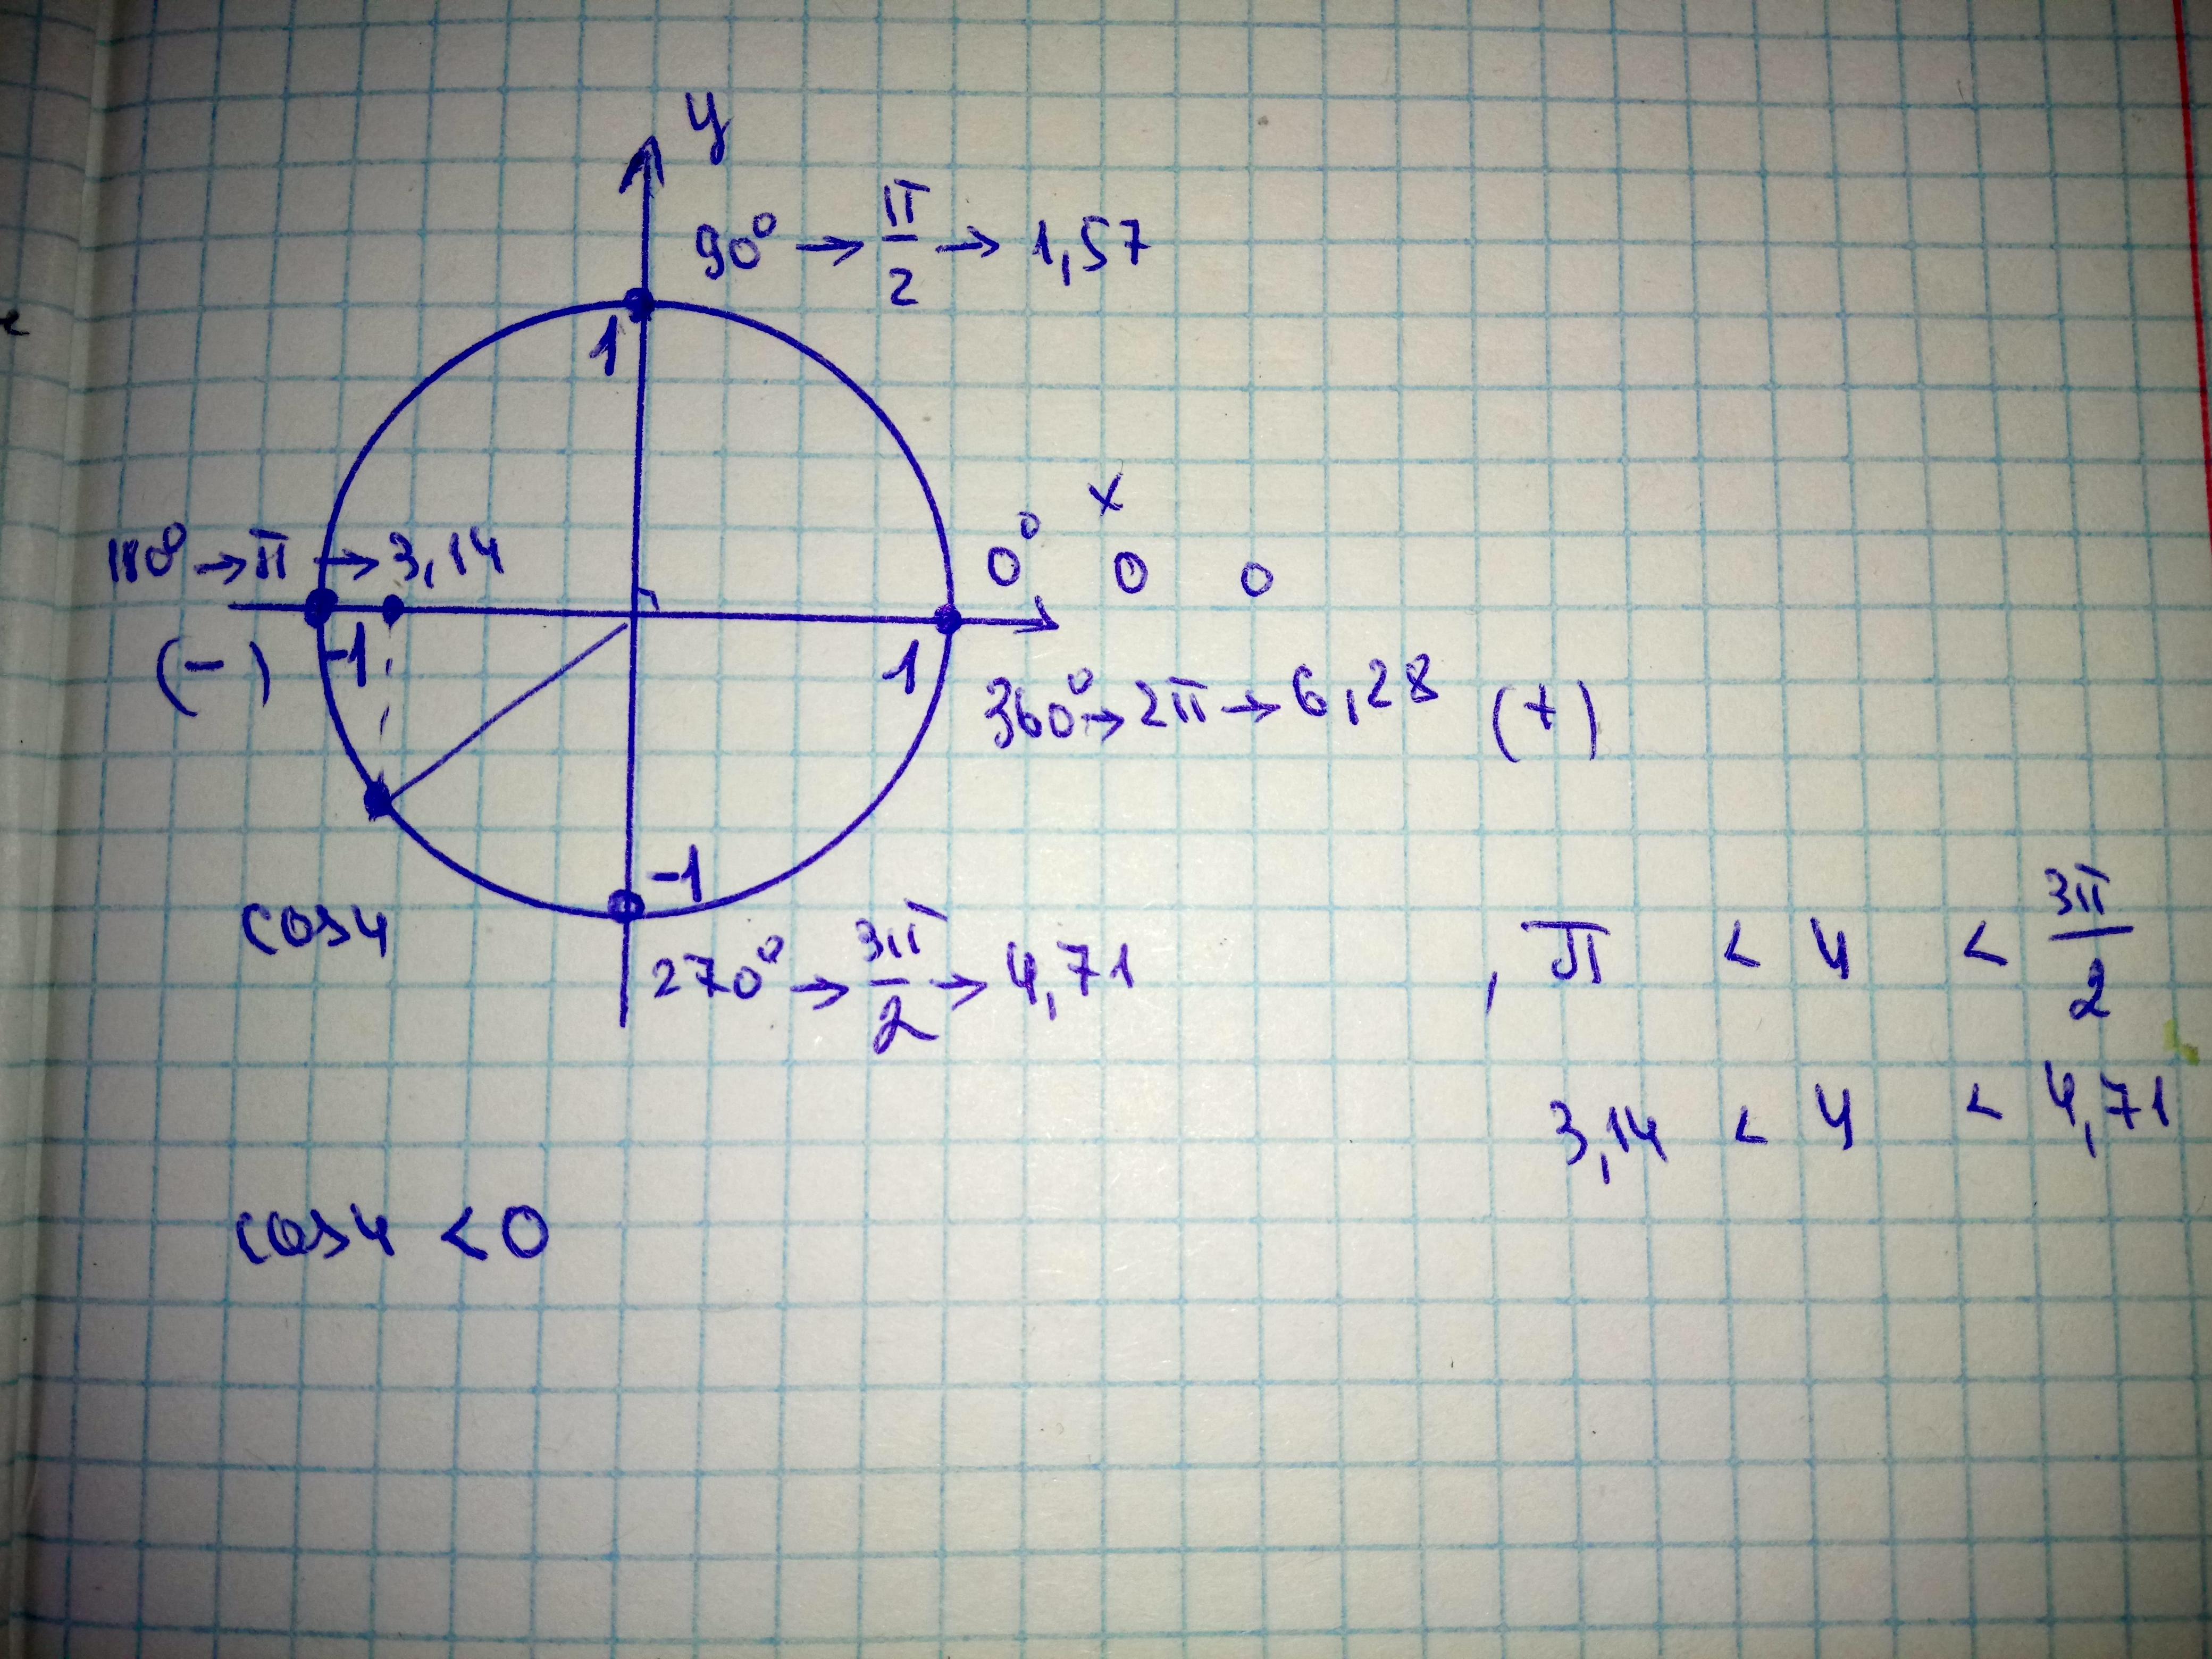 y
90° → π/2 → 1,57
1
x
180° → π → 3,14
0° 0 0
(-) -1
1
360° → 2π → 6,28 (+)
-1
cos4
270° → 3π/2 → 4,71
, π < 4 < 3π/2
3,14 < 4 < 4,71
cos4 < 0